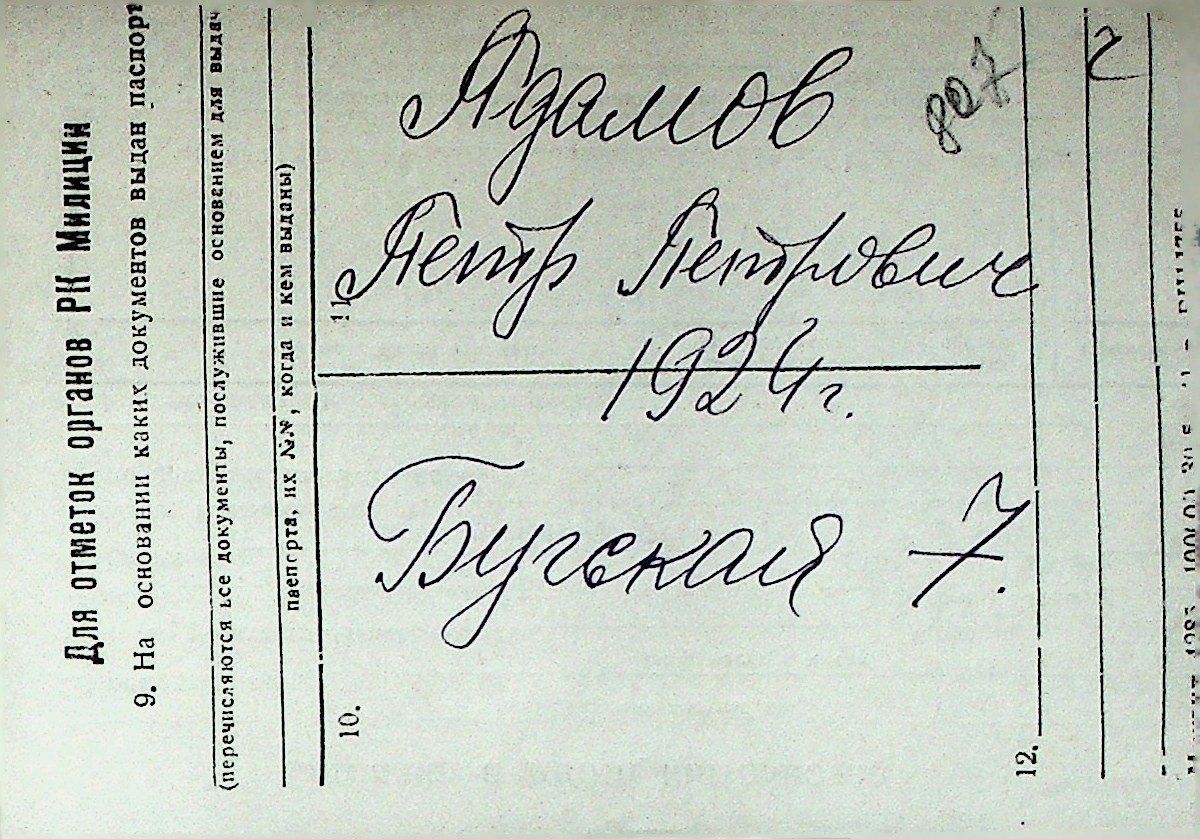 Для отметок органов РК Милиции
9. На основании каких документов выдан паспорт
(перечисляются все документы, послужившие основанием для выдач
паспорта, их №№, когда и кем выданы)
10.
11.
12.
Адамов
Петр Петрович
1924г.
Бугская 7.